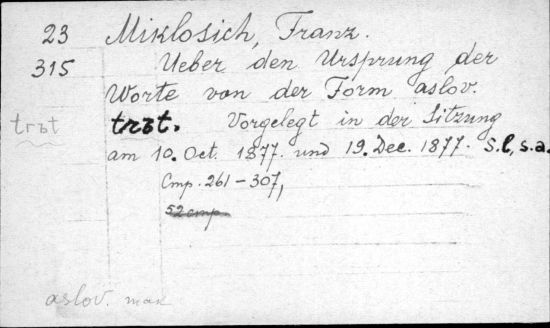 23 Miklosich, Franz.
315 Ueber den Ursprung der
Worte von der Form aslov.
trъt trъt. Vorgelegt in der Sitzung
am 10. Oct. 1877. und 19. Dec. 1877. S.l., s.a.
Стр. 261-307,
52 стр.
aslov.